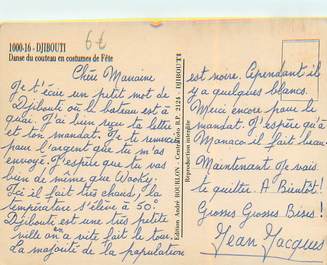 1000-16 - DJIBOUTI
Danse du couteau en costumes de Fête
6€
Chère Mamaine
Je t'écrie un petit mot de
Djibouti où le bateau est à
quai. J'ai bien reçu ta lettre
et ton mandat. Je te remercie
pour l'argent que tu m'as
envoyé. J'espère que tu vas
bien de même que Wooky.
Ici il fait très chaud, la
température s'élève à 50°.
Djibouti est une très petite
ville on a vite fait le tour.
La majorité de la population
Edition André BOURLON - Cartorama B.P. 2124 - DJIBOUTI
Reproduction interdite
est noire. Cependant il
y a quelques blancs.
Merci encore pour le
mandat. J'espère qu'à
Monaco il fait beau.
Maintenant je vais
te quitter. A Bientôt!
Grosses Grosses Bises!
Jean Jacques